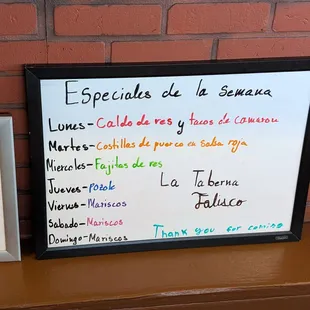 Especiales de la semana
Lunes-Caldo de res y tacos de camaron
Martes-Costillas de puerco ca salsa roja
Miercoles-Fajitas de res
Jueves-pozole
La Taberna
Viernes-Mariscos
Jalisco
Sabado-Mariscos
Domingo-Mariscos
Thank you for coming